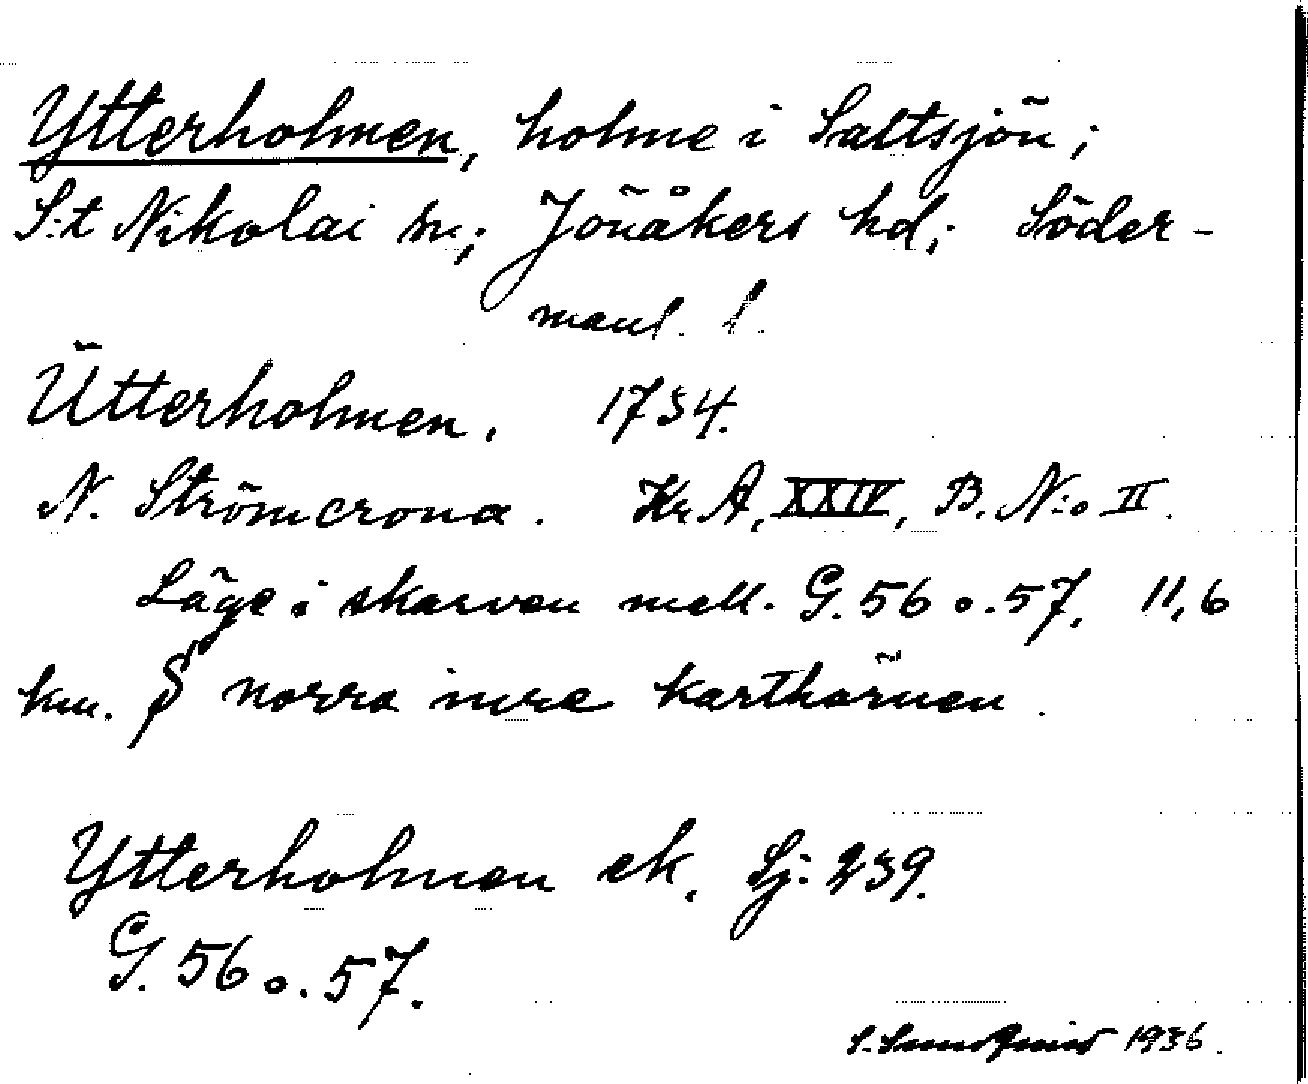 Ytterholmen, holme i Saltsjön;
S:t Nikolai sn; Jönåkers hd; Söder-
manl. l.
Ütterholmen. 1734.
N. Strömcrona. Kr A, XXIV, B. N:o II.
Läge i skarven mell. G. 56 o. 57. 11,6
km. norra inre karthörnen.
Ytterholmen ek. Sj: 239.
G. 56 o. 57.
S. Sundqvist 1936.